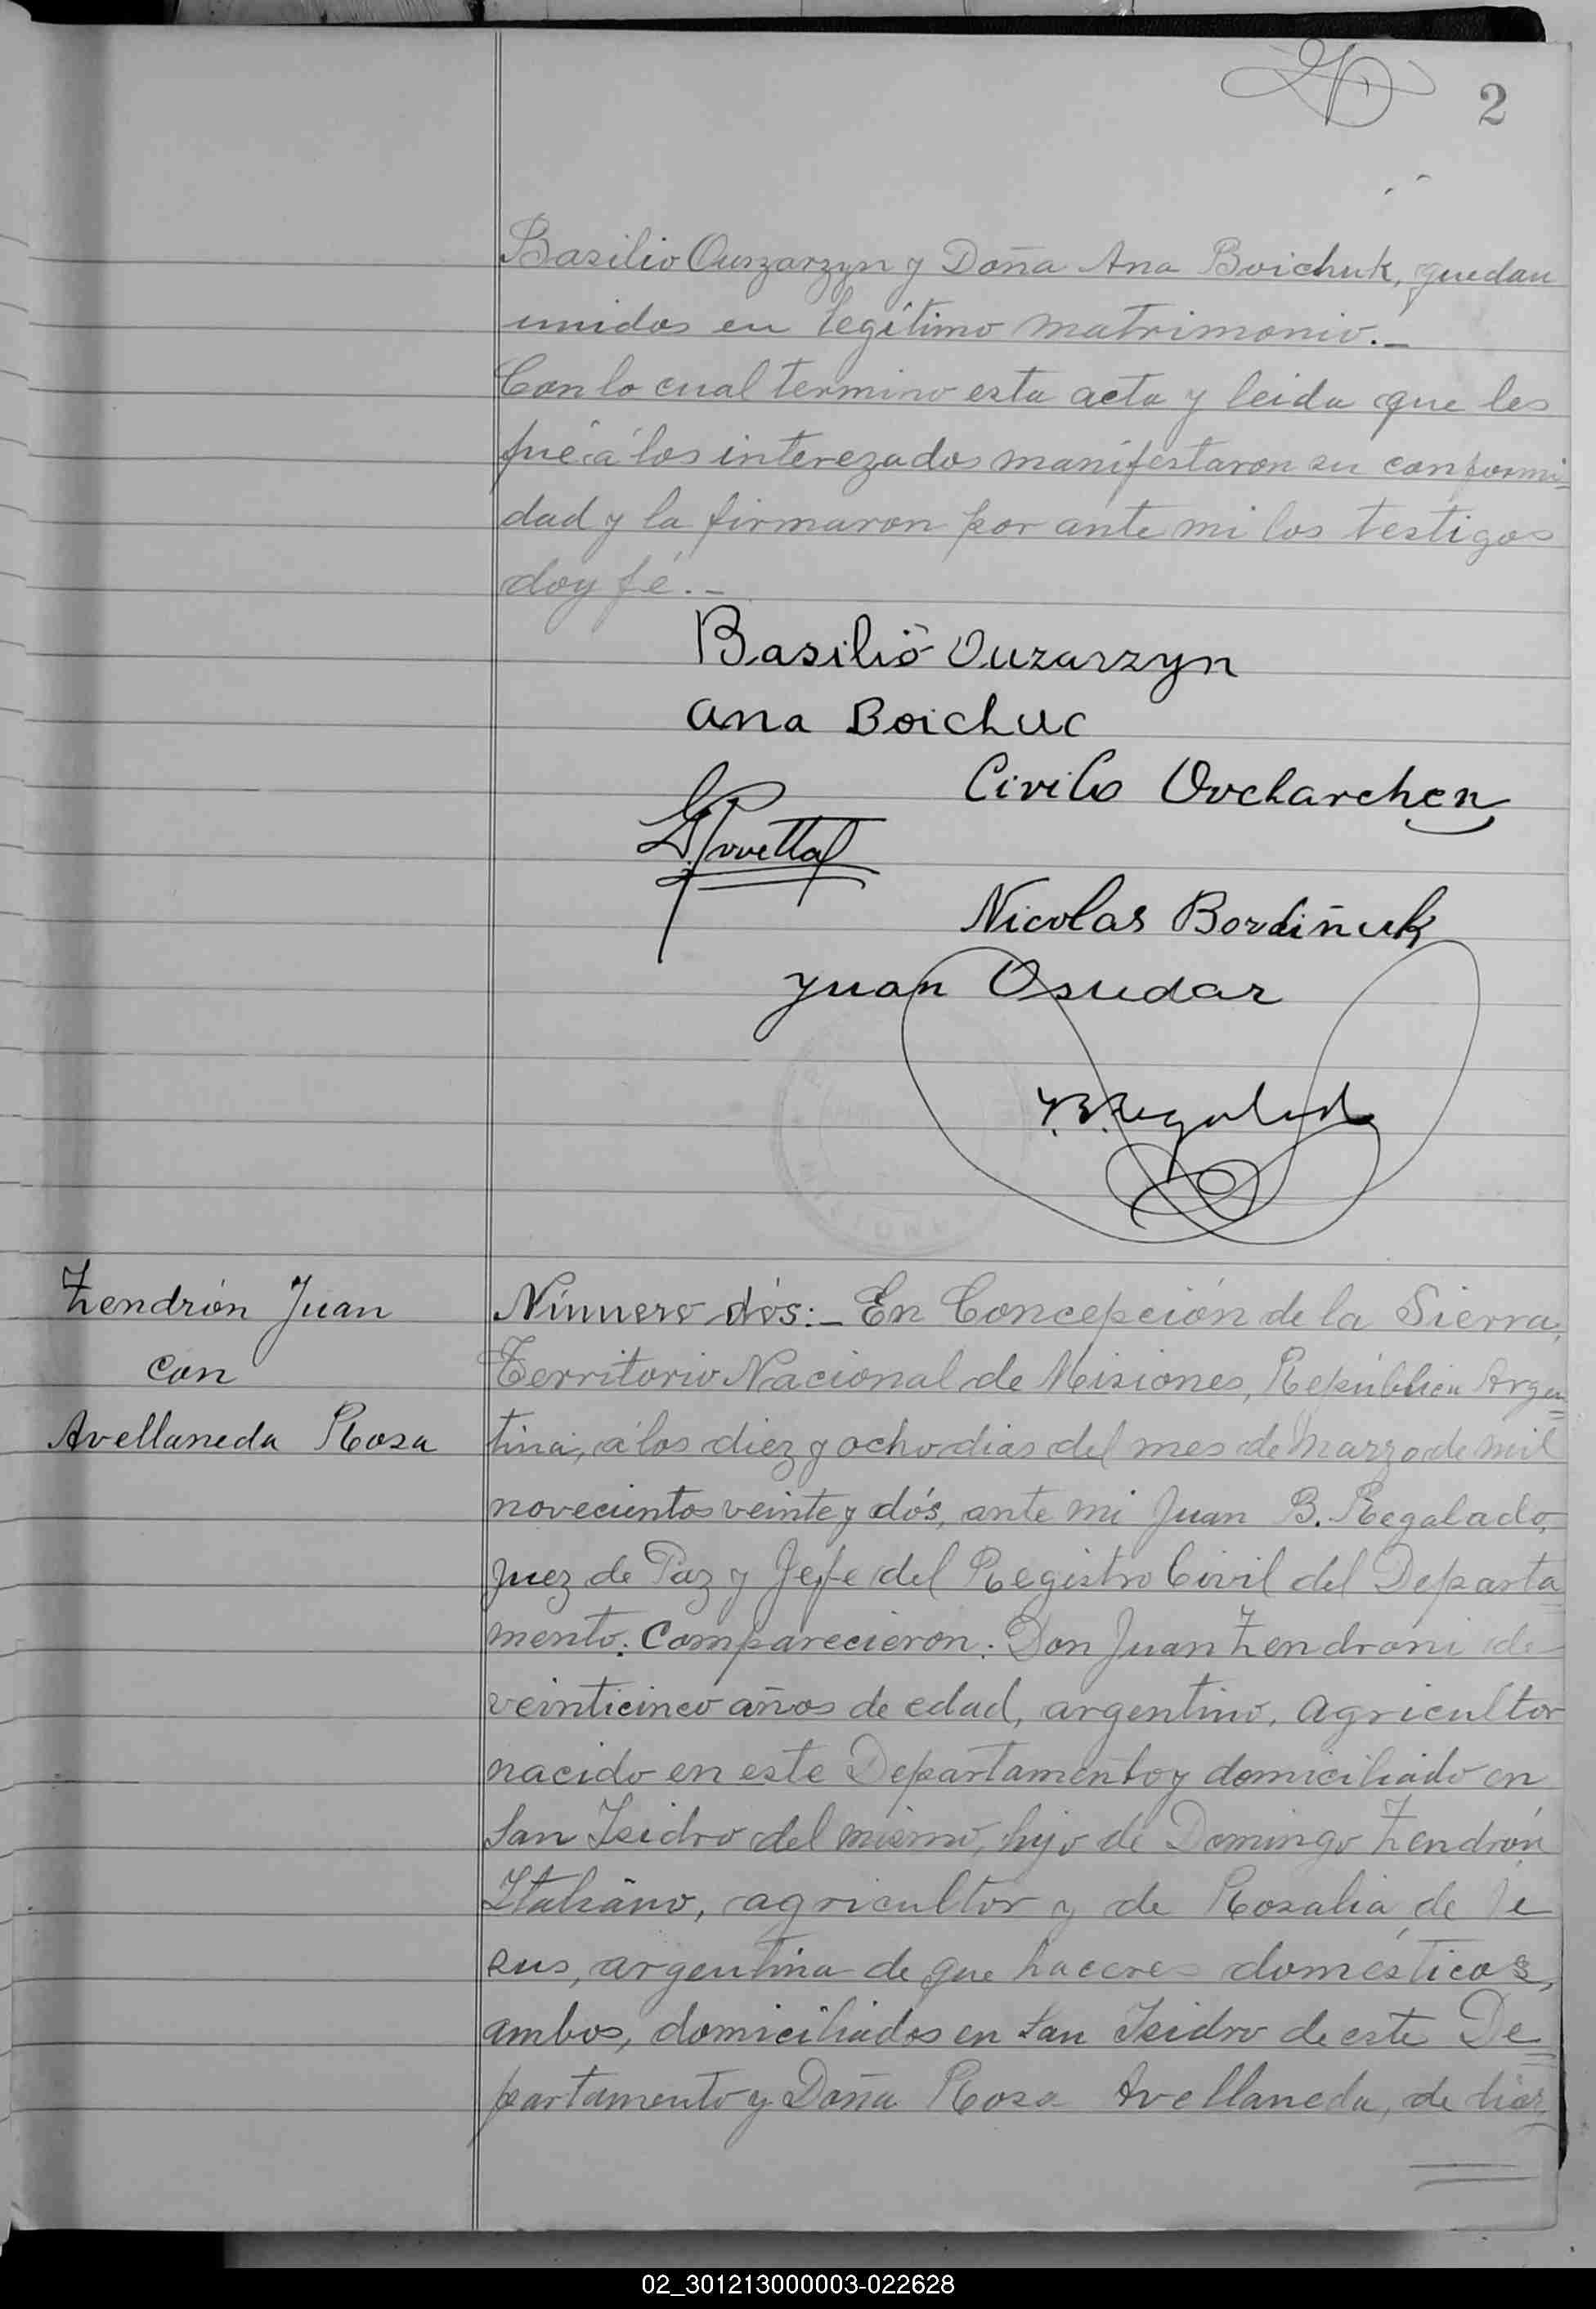 2
Basilio Ouszarzyn y Doña Ana Boichuk, quedan
unidos en legítimo matrimonio._
Con lo cual termino esta acta y leida que les
fué á los interezados manifestaron su conformi-
dad y la firmaron por ante mi los testigos
doy fé._
Basilio Ouzarzyn
Ana Boichuc
Civilo Ovcharchen
Nicolas Bordiñuk
Juan Osudar
J.B. Regalado
Zendrón Juan
con
Avellaneda Rosa
Número dós:_ En Concepción de la Sierra,
Territorio Nacional de Misiones, República Argen=
tina, á los diez y ocho dias del mes de Marzo de mil
novecientos veinte y dós, ante mi Juan B. Regalado,
Juez de Paz y Jefe del Registro Civil del Departa=
mento. Comparecieron: Don Juan Zendroni de
veinticinco años de edad, argentino, agricultor
nacido en este Departamento y domiciliado en
San Isidro del mismo, hijo de Domingo Zendrón
Italiano, agricultor y de Rosalia de Je
sus, argentina de que haceres domésticos,
ambos, domiciliados en San Isidro de este De=
partamento y Doña Rosa Avellaneda, de diez
02_301213000003-022628